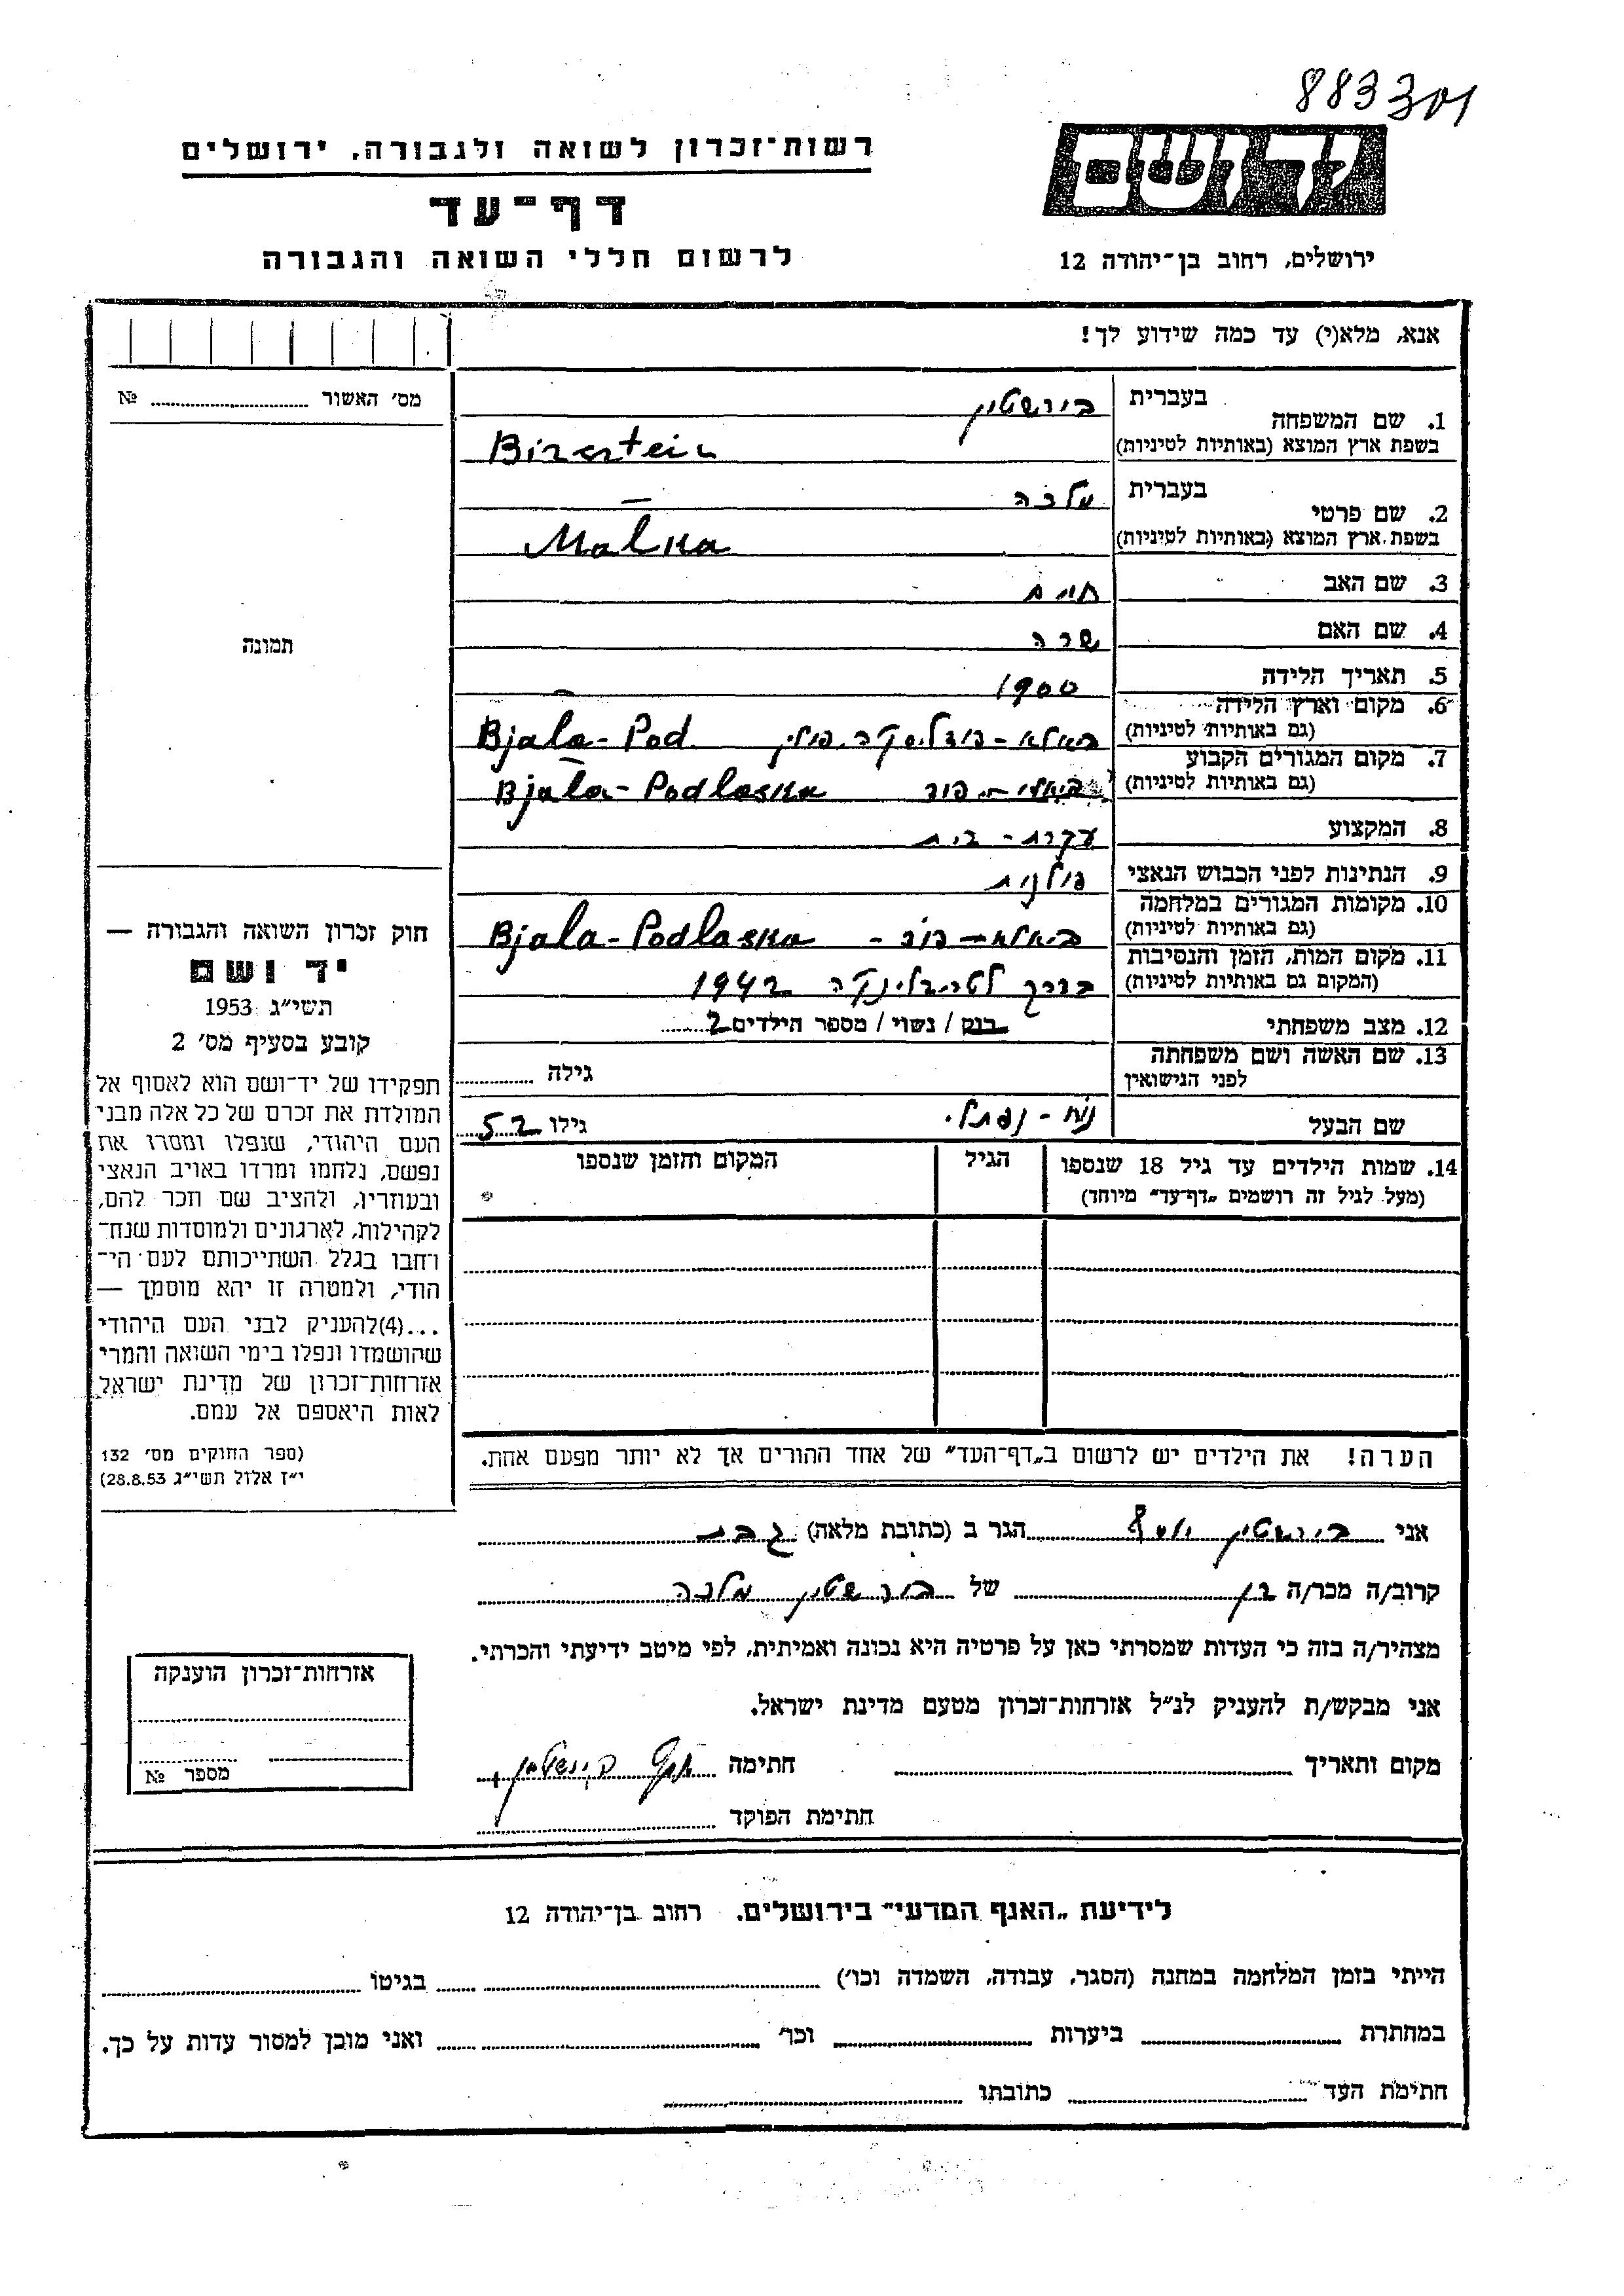 883301
רשות־זכרון לשואה ולגבורה, ירושלים
יד ושם
דף־עד
לרשום חללי השואה והגבורה
ירושלים, רחוב בן־יהודה 12
אנא, מלא(י) עד כמה שידוע לך!
מס׳ האשור № 
1. שם המשפחה בעברית בורשטין
בשפת ארץ המוצא (באותיות לטיניות) Birnstein
2. שם פרטי בעברית מלכה
בשפת ארץ המוצא (באותיות לטיניות) Malka
3. שם האב חיים
4. שם האם שרה
5. תאריך הלידה 1900
6. מקום וארץ הלידה (גם באותיות לטיניות) ביאלא-פודלסקה, פולין Bjala-Pod.
7. מקום המגורים הקבוע (גם באותיות לטיניות) ביאלא-פוד Bjala-Podlaska
8. המקצוע עקרת-בית
9. הנתינות לפני הכבוש הנאצי פולנית
10. מקומות המגורים במלחמה (גם באותיות לטיניות) ביאלא-פוד- Bjala-Podlaska
11. מקום המות, הזמן והנסיבות (המקום גם באותיות לטיניות) בדרך לטרבלינקה 1942
12. מצב משפחתי רווק / נשוי / מספר הילדים 2
13. שם האשה ושם משפחתה לפני הנישואין גילה
שם הבעל נח-נפתלי גילו 52
14. שמות הילדים עד גיל 18 שנספו הגיל המקום והזמן שנספו
(מעל לגיל זה רושמים „דף־עד״ מיוחד)
הערה! את הילדים יש לרשום ב„דף־העד״ של אחד ההורים אך לא יותר מפעם אחת.
תמונה
חוק זכרון השואה והגבורה —
יד ושם
תשי״ג 1953
קובע בסעיף מס׳ 2
תפקידו של יד־ושם הוא לאסוף אל
המולדת את זכרם של כל אלה מבני
העם היהודי, שנפלו ומסרו את
נפשם, נלחמו ומרדו באויב הנאצי
ובעוזריו, ולהציב שם וזכר להם,
לקהילות, לארגונים ולמוסדות שנח־
רחבו בגלל השתייכותם לעם הי־
הודי, ולמטרה זו יהא מוסמך —
...(4)להעניק לבני העם היהודי
שהושמדו ונפלו בימי השואה והמרי
אזרחות־זכרון של מדינת ישראל
לאות היאספם אל עמם.
(ספר החוקים מס׳ 132
י״ז אלול תשי״ג 28.8.53)
אני בורשטין יוסף הגר ב (כתובת מלאה) גבת
קרוב/ה מכר/ה בן של בורשטין מלכה
מצהיר/ה בזה כי העדות שמסרתי כאן על פרטיה היא נכונה ואמיתית, לפי מיטב ידיעתי והכרתי.
אני מבקש/ת להעניק לנ״ל אזרחות־זכרון מטעם מדינת ישראל.
מקום ותאריך חתימה יוסף בורשטין
חתימת הפוקד
אזרחות־זכרון הוענקה
מספר №
לידיעת „האגף המדעי״ בירושלים, רחוב בן־יהודה 12
הייתי בזמן המלחמה במחנה (הסגר, עבודה, השמדה וכו׳) בגיטו
במחתרת ביערות וכו׳ ואני מוכן למסור עדות על כך.
חתימת העד כתובתו